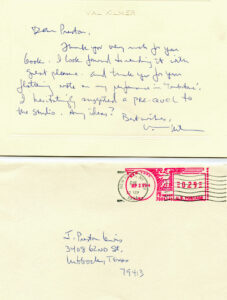 VAL KILMER
Dear Preston,
Thank you very much for your
book. I look forward to reading it with
great pleasure. and thank you for your
flattering note on my performance in "Tombstone".
I hesitatingly suggested a pre-quel to
the studio. Any ideas?
Best wishes,
J. Preston Lewis
3408 62nd St.
Lubbock, Texas
79413